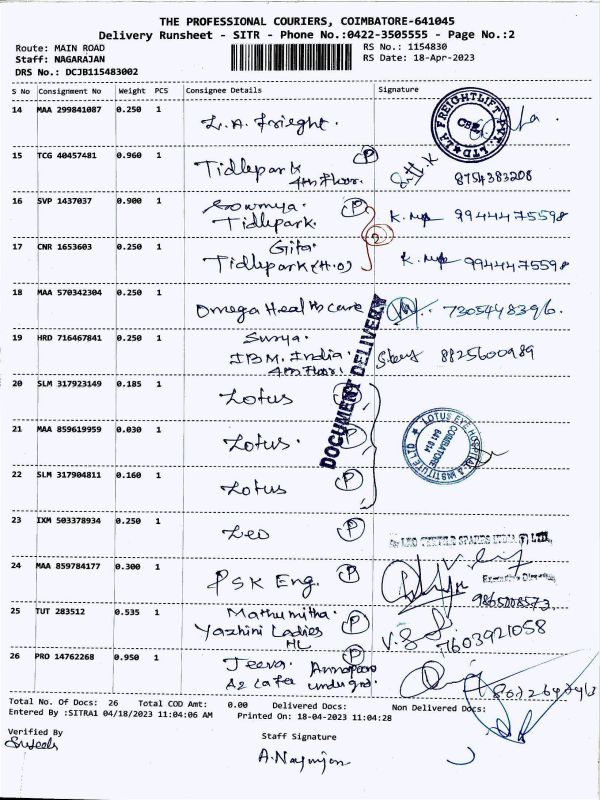 THE PROFESSIONAL COURIERS, COIMBATORE-641045
Delivery Runsheet - SITR - Phone No.:0422-3505555 - Page No.:2
Route: MAIN ROAD
RS No.: 1154830
Staff: NAGARAJAN
RS Date: 18-Apr-2023
DRS No.: DCJB115483002
S No Consignment No Weight PCS Consignee Details Signature
14 MAA 299841087 0.250 1 L.A. Frieght.
LA FREIGHTLIFT PVT. LTD
CBE
15 TCG 40457481 0.960 1 Tidlepark P
4th Floor. 8754383208
16 SVP 1437037 0.900 1 Sowmya. P
Tidlepark. K. 9944475598
17 CNR 1653603 0.250 1 Gita.
Tidlepark (H.O) K. 9944475598
2
18 MAA 570342304 0.250 1 Omega Health care 7305448396.
19 HRD 716467841 0.250 1 Surya.
IBM. India. 8825600989
4th Floor.
DOCUMENT DELIVERY
20 SLM 317923149 0.185 1 Lotus P
21 MAA 859619959 0.030 1 Lotus. P
LOTUS EYE HOSPITAL & INSTITUTE LTD
COIMBATORE
641 014
22 SLM 317904811 0.160 1 Lotus P
23 IXM 503378934 0.250 1 Leo P
LEO TEXTILE SPARES INDIA (P) LTD.
24 MAA 859784177 0.300 1 PSK Eng. P
Executive Director
9865008573
25 TUT 283512 0.535 1 Mathumitha.
Yazhini Ladies P
HL V.S 7603921058
26 PRO 14762268 0.950 1 Jeeva. Annapoorna P
A2 Cafe under grd.
Total No. Of Docs: 26 Total COD Amt: 0.00 Delivered Docs: Non Delivered Docs:
Entered By :SITRA1 04/18/2023 11:04:06 AM Printed On: 18-04-2023 11:04:28
Verified By
Staff Signature